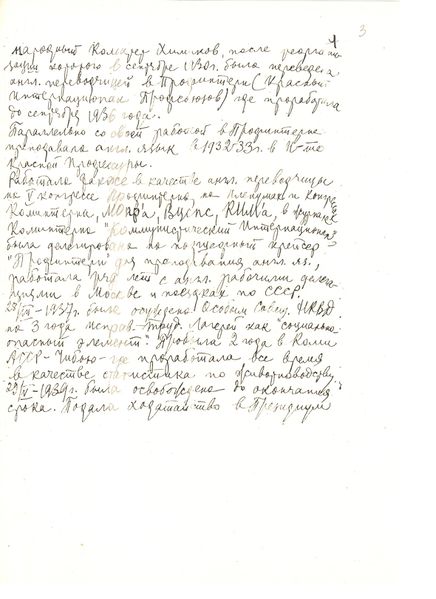 3
4
народный Комитет Химиков, после реорганизации
которого в сентябре 1930г. была переведена
англ. переводчицей в Профинтерн (Красный
Интернационал Профсоюзов) где проработала
до сентября 1936 года.
Параллельно со своей работой в Профинтерне
преподавала англ. язык в 1932-33г. в И-те
Красной Профессуры.
Работала также в качестве англ. переводчицы
на V конгрессе Профинтерна, на пленумах и Конгрессах
Коминтерна, МОПРа, ВЦСПС, КИМа, в журнале
Коминтерна "Коммунистический Интернационал"
была делегирована на
"Профинтерн" для преподавания англ. яз.,
работала ряд лет с англ. рабочими делегациями
в Москве и поездках по СССР.
1937г. была осуждена Особым Совещ. НКВД
на 3 года исправ.-труд. лагерей как социально-
опасный элемент. Пробыла 2 года в Коми
АССР - Чибью - где проработала все время
в качестве статистика по животноводству.
1939г. была освобождена до окончания
срока. Подала ходатайство в Президиум